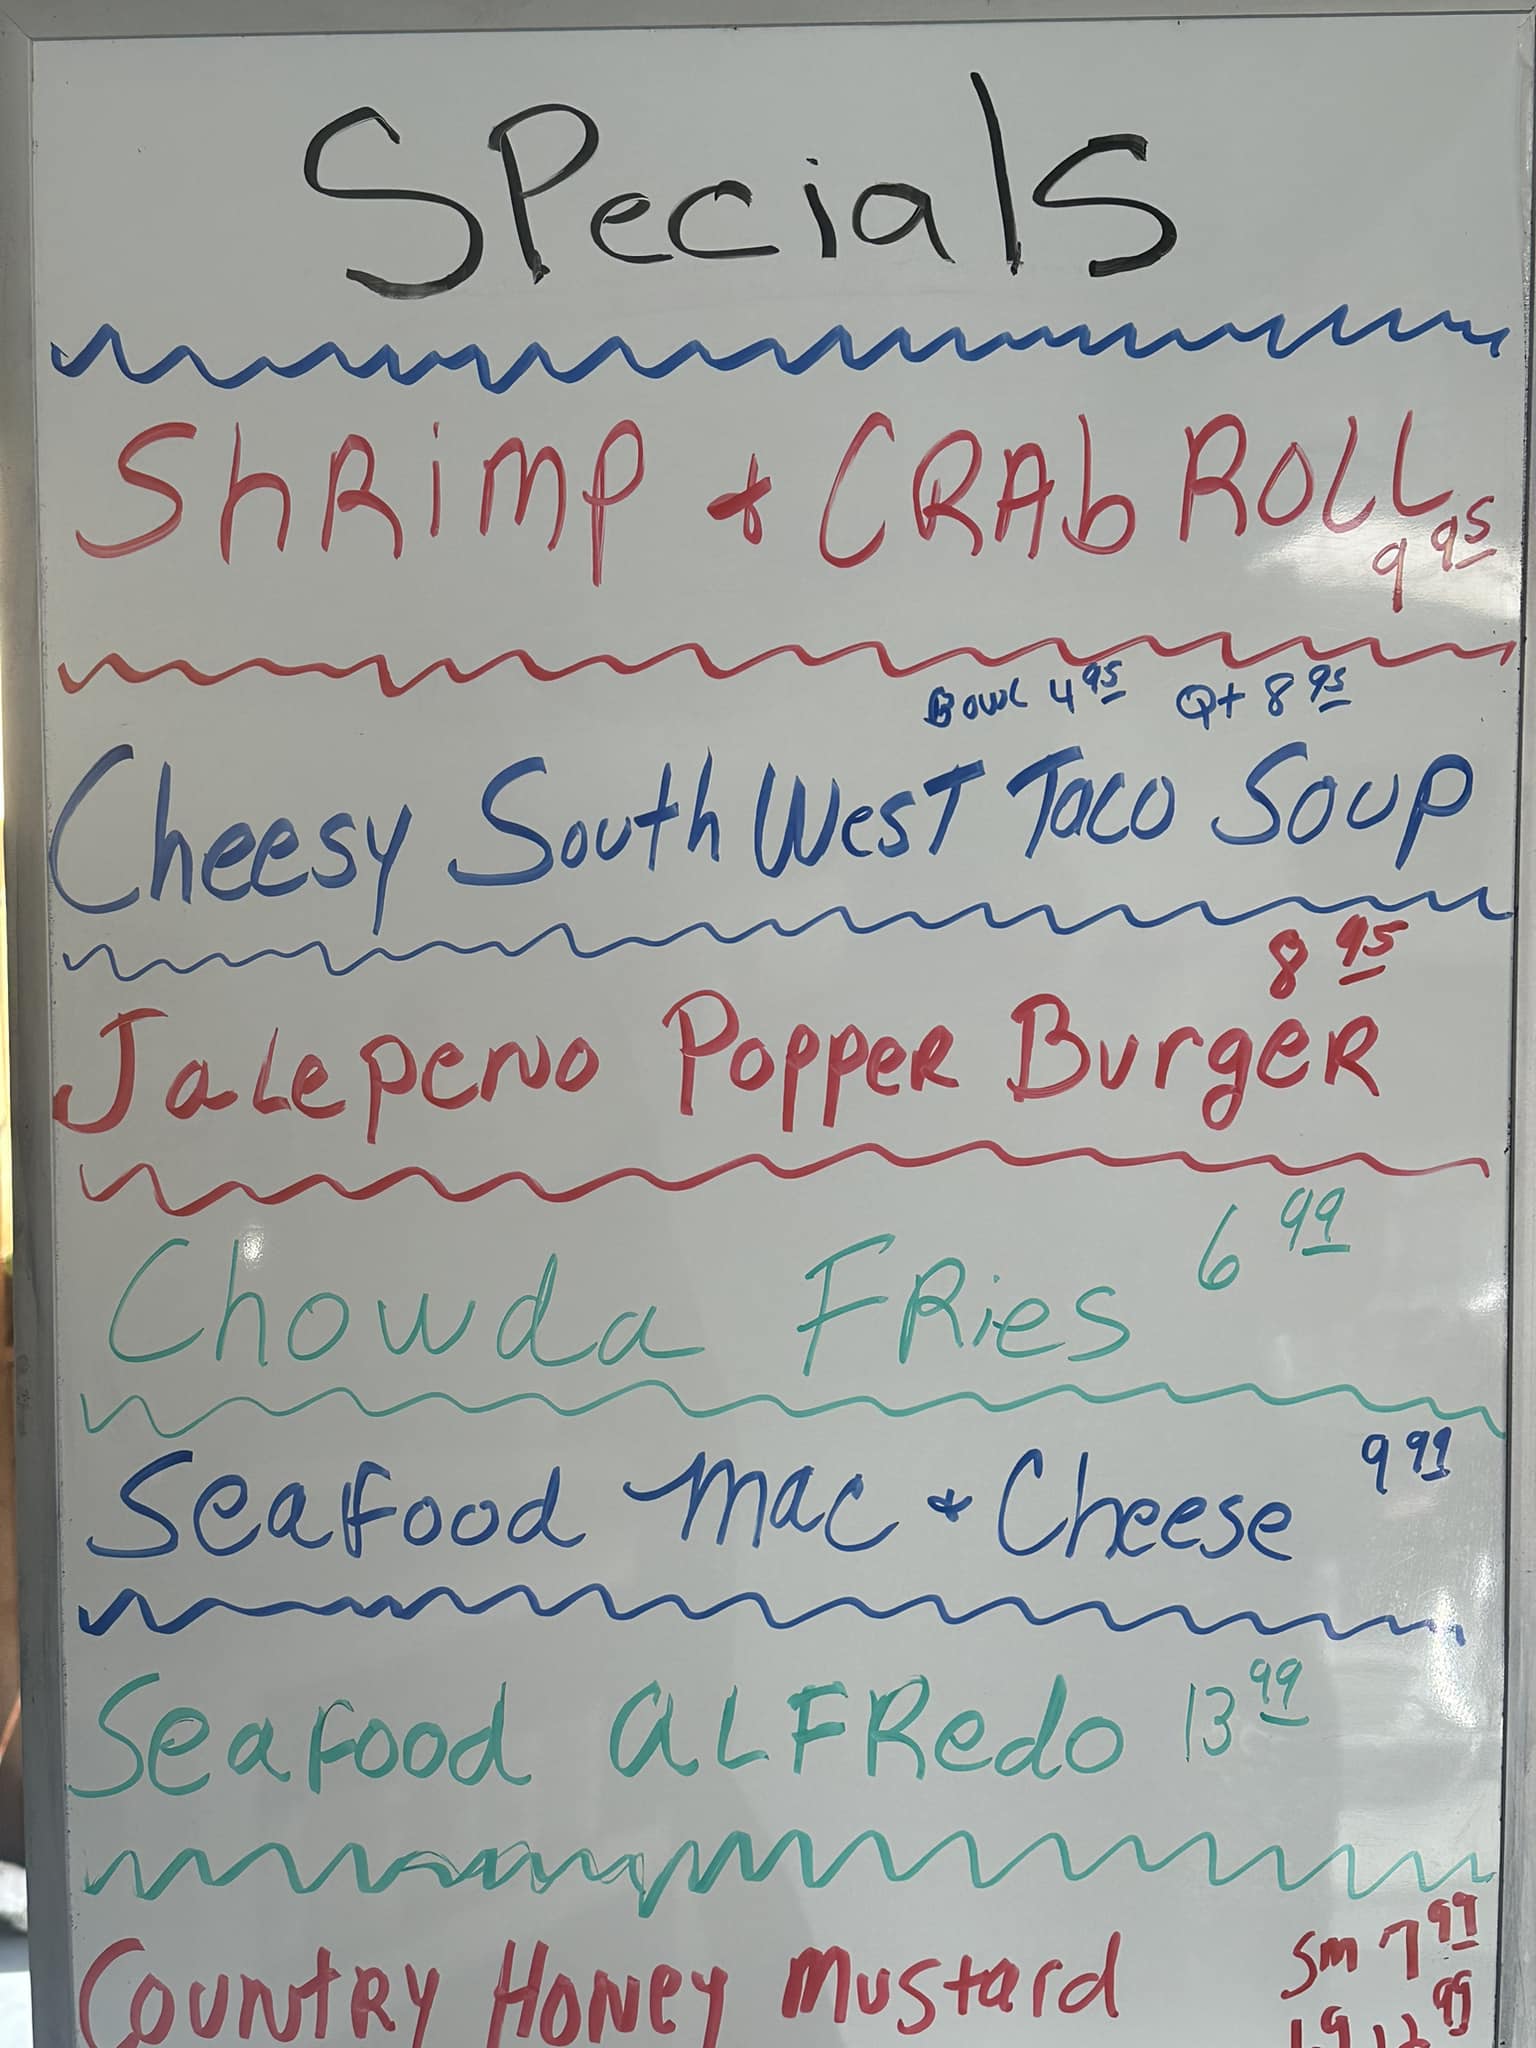 SPecials
ShRimp + CRAb ROLL
9 95
Bowl 4 95 Qt 8 95
Cheesy SouthWesT Taco Soup
8 95
JaLepeno Popper Burger
Chowda FRies 6 99
Seafood mac + Cheese 9 99
Seafood aLFRedo 13 99
Country Honey mustard Sm 7 99
99